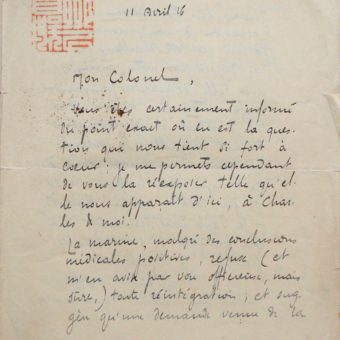 11 Avril 16
Mon Colonel,
Vous êtes certainement informé
du point exact où en est la ques-
tion qui nous tient si fort à
coeur : je me permets cependant
de vous la réexposer telle qu'el-
le nous apparaît d'ici, à Char-
les & moi.
La marine, malgré des conclusions
médicales positives, refuse (et
m'en avise par voie officieuse, mais
sûre,) toute réintégration ; et sug-
gère qu'une demande venue de la